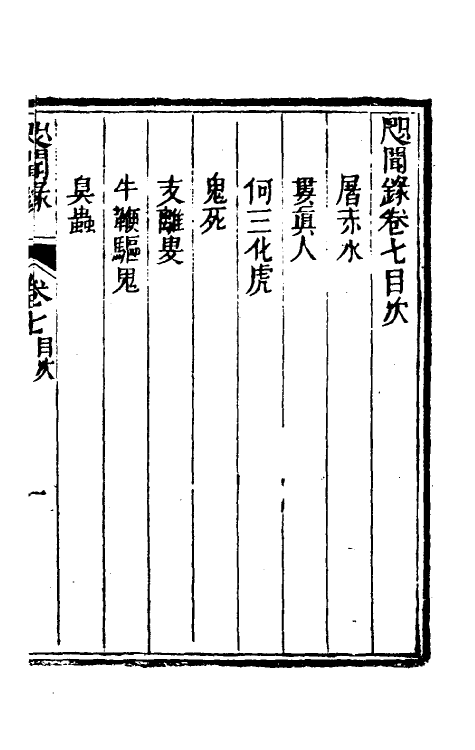 咫聞錄卷七目次
屠赤水
婁真人
何三化虎
鬼死
支離叟
牛鞭驅鬼
臭蟲
咫聞錄
卷七目次
一